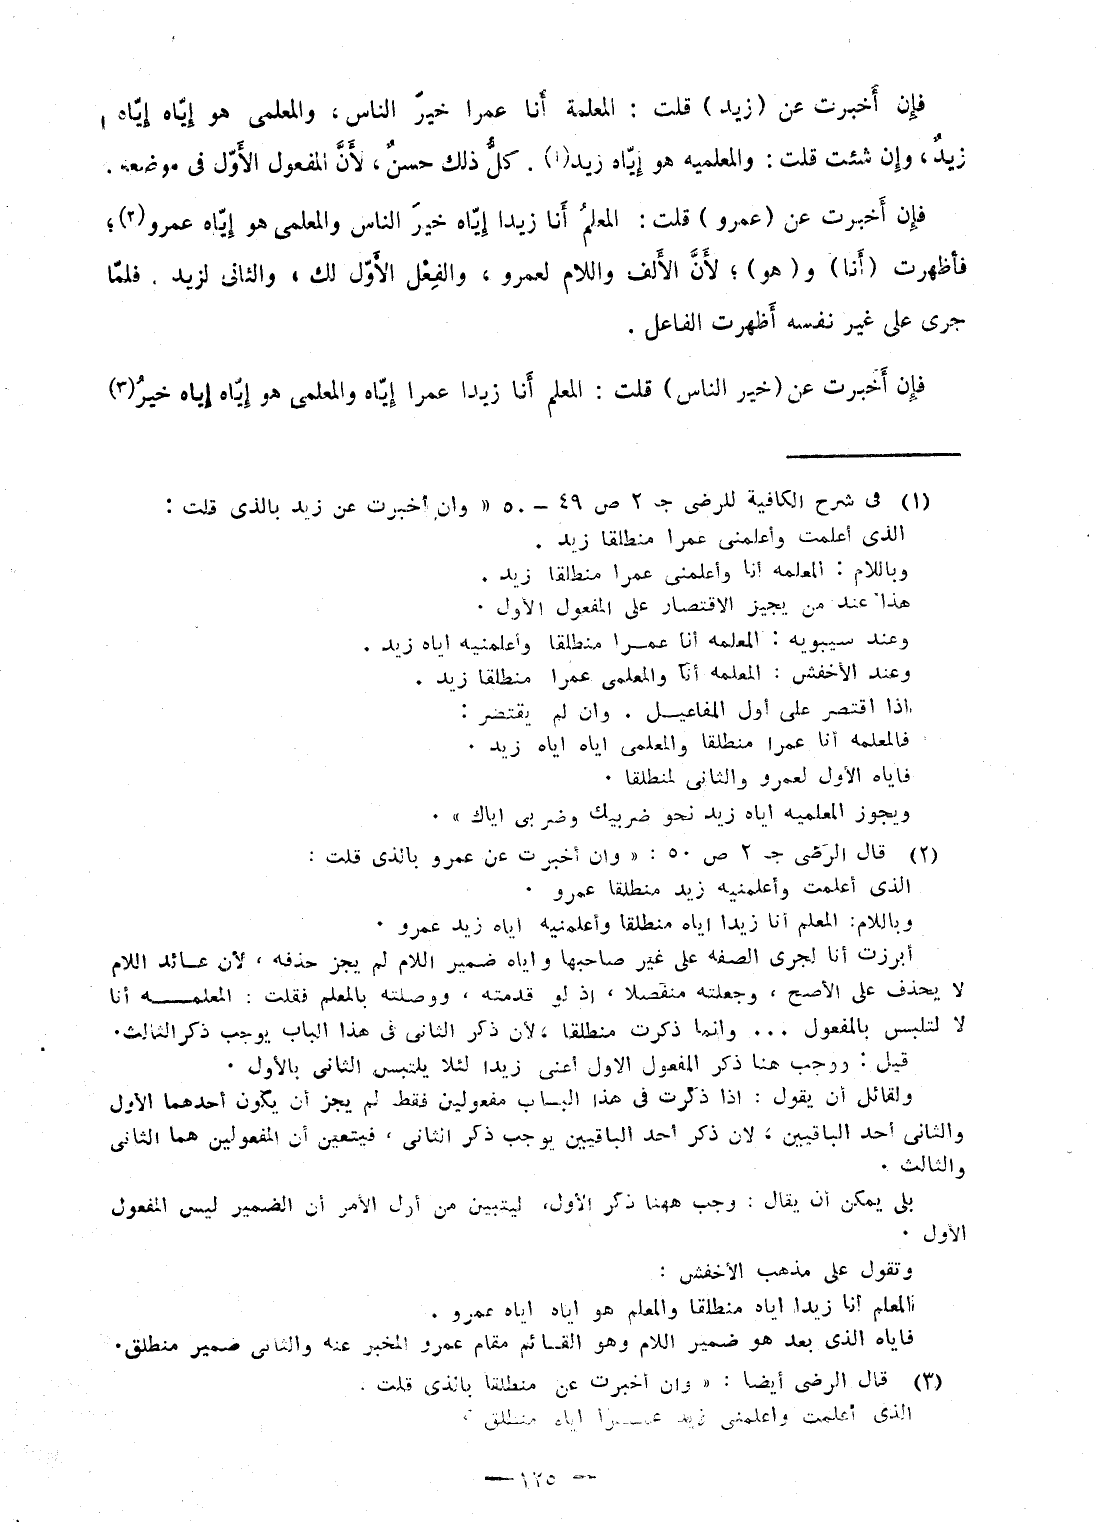 فإن أَخبرت عن (زيد) قلت : المعلمة أَنا عمرا خيرَ الناس، والمعلمى هو إيّاه إيّاه
زيدٌ، وإن شئت قلت: والمعلميه هو إيّاه زيد(١) . كلُّ ذلك حسنٌ، لأَنَّ المفعول الأَوّل فى موضعه .
فإن أَخبرت عن (عمرو) قلت : المعلمُ أَنا زيدا إيّاه خيرَ الناس والمعلمى هو إيّاه عمرو(٢)؛
فأظهرت (أَنا) و(هو)؛ لأَنَّ الأَلف واللام لعمرو ، والفِعْل الأَوّل لك ، والثانى لزيد . فلمّا
جرى على غير نفسه أَظهرت الفاعل .
فإن أَخبرت عن (خير الناس) قلت : المعلم أَنا زيدا عمرا إيّاه والمعلمى هو إيّاه إياه خيرُ(٣)
(١) فى شرح الكافية للرضى جـ ٢ ص ٤٩ – ٥٠ « وان أخبرت عن زيد بالذى قلت :
الذى أعلمت وأعلمنى عمرا منطلقا زيد .
وباللام : المعلمه أنا وأعلمنى عمرا منطلقا زيد .
هذا عند من يجيز الاقتصار على المفعول الأول .
وعند سيبويه : المعلمه أنا عمــرا منطلقا وأعلمنيه اياه زيد .
وعند الأخفش : المعلمه أنا والمعلمى عمرا منطلقا زيد .
اذا اقتصر على أول المفاعيـل . وان لم يقتصر :
فالمعلمه أنا عمرا منطلقا والمعلمى اياه اياه زيد .
فاياه الأول لعمرو والثانى لمنطلقا .
ويجوز المعلميه اياه زيد نحو ضربيك وضربى اياك » .
(٢) قال الرضى جـ ٢ ص ٥٠ : « وان أخبرت عن عمرو بالذى قلت :
الذى أعلمت وأعلمنيه زيد منطلقا عمرو .
وباللام: المعلم أنا زيدا اياه منطلقا وأعلمنيه اياه زيد عمرو .
أبرزت أنا لجرى الصفه على غير صاحبها واياه ضمير اللام لم يجز حذفه ، لأن عـائد اللام
لا يحذف على الأصح ، وجعلته منفصلا ، إذ لو قدمته ، ووصلته بالمعلم فقلت : المعلمــه أنا
لا لتلبس بالمفعول ... وانما ذكرت منطلقا ، لأن ذكر الثانى فى هذا الباب يوجب ذكر الثالث .
قيل : ووجب هنا ذكر المفعول الاول أعنى زيدا لئلا يلتبس الثانى بالأول .
ولقائل أن يقول : اذا ذكرت فى هذا البـاب مفعولين فقط لم يجز أن يكون أحدهما الأول
والثانى أحد الباقيين ، لان ذكر أحد الباقيين يوجب ذكر الثانى ، فيتعين أن المفعولين هما الثانى
والثالث .
بلى يمكن أن يقال : وجب ههنا ذكر الأول، ليتبين من أول الأمر أن الضمير ليس المفعول
الأول .
وتقول على مذهب الأخفش :
المعلم أنا زيدا اياه منطلقا والمعلم هو اياه اياه عمرو .
فاياه الذى بعد هو ضمير اللام وهو القـائم مقام عمرو المخبر عنه والثانى ضمير منطلق .
(٣) قال الرضى أيضا : « وان أخبرت عن منطلقا بالذى قلت .
الذى أعلمت وأعلمنى زيد عمـرا اياه منطلق
— ١٢٥ —